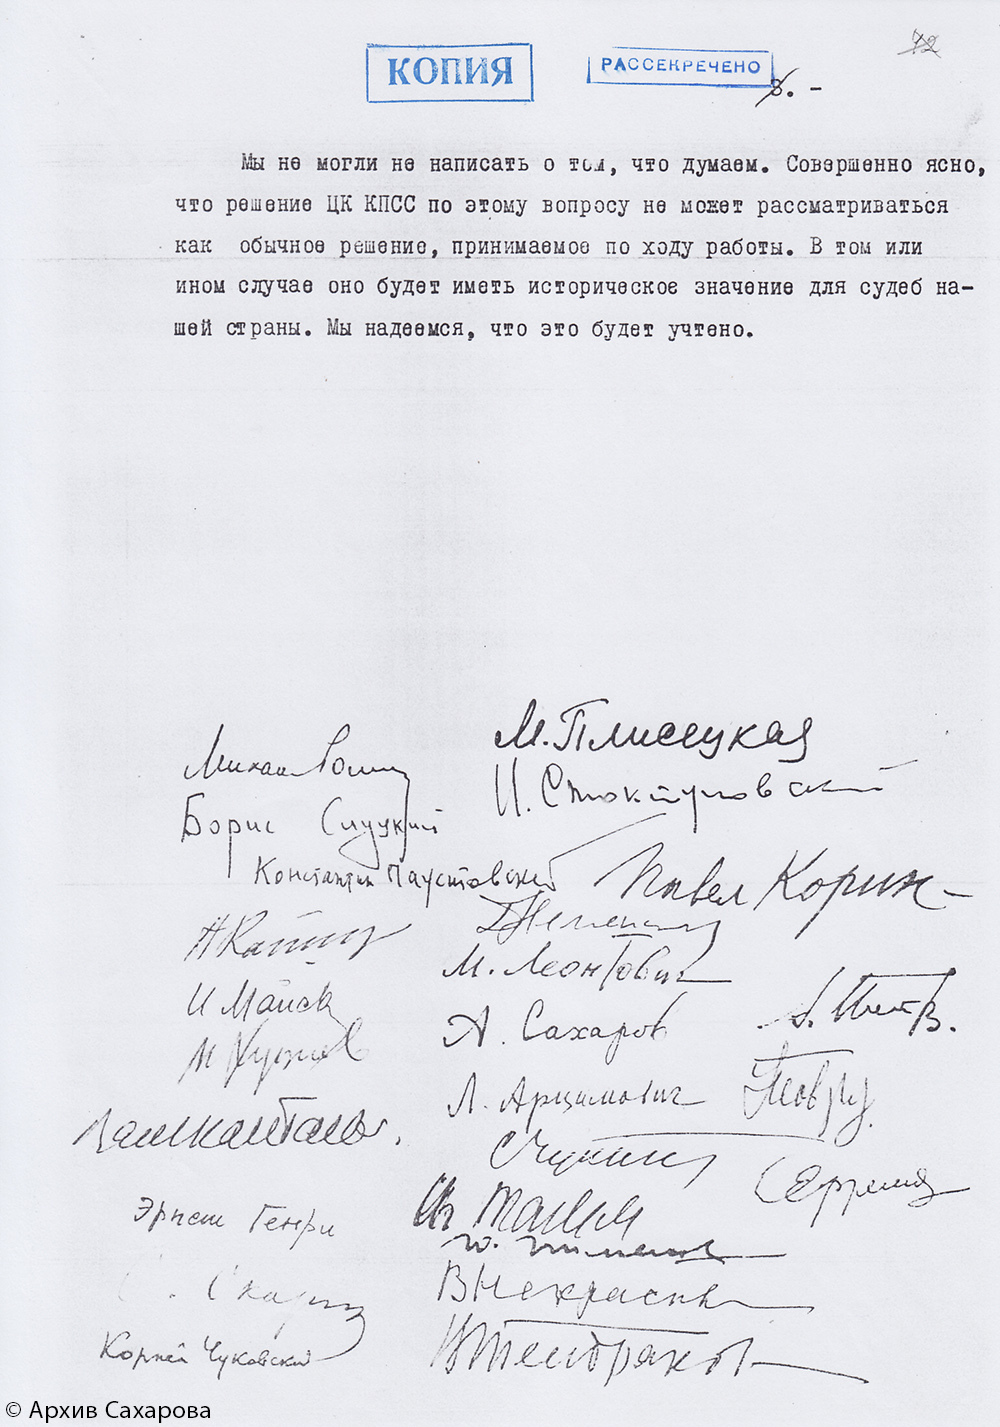 72
КОПИЯ
РАССЕКРЕЧЕНО
8. -
Мы не могли не написать о том, что думаем. Совершенно ясно,
что решение ЦК КПСС по этому вопросу не может рассматриваться
как обычное решение, принимаемое по ходу работы. В том или
ином случае оно будет иметь историческое значение для судеб на-
шей страны. Мы надеемся, что это будет учтено.
М. Плисецкая
Михаил Ромм
И. Смоктуновский
Борис Слуцкий
Константин Паустовский
Павел Корин
М. Леонтович
И Майск
А. Сахаров
Л. Арцимович
Эрнст Генри
В Некрасов
С. Сказкин
Корней Чуковский
В Тендряков
© Архив Сахарова